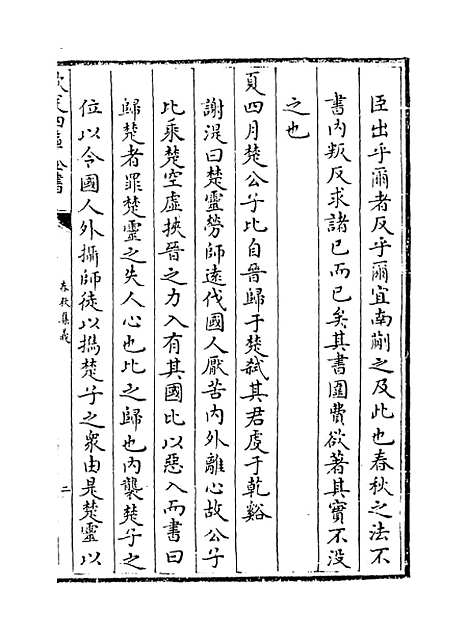 臣出乎爾者反乎爾宜南蒯之及此也春秋之法不
書内叛反求諸已而已矣其書圍費欲著其實不没
之也
夏四月楚公子比自晉歸于楚弑其君虔于乾谿
謝湜曰楚靈勞師逺伐國人厭苦内外離心故公子
比乘楚空虚挾晉之力入有其國比以惡入而書曰
歸楚者罪楚靈之失人心也比之歸也内襲楚子之
位以令國人外攝師徒以撝楚子之衆由是楚靈以
欽定四庫全書
春秋集義
二